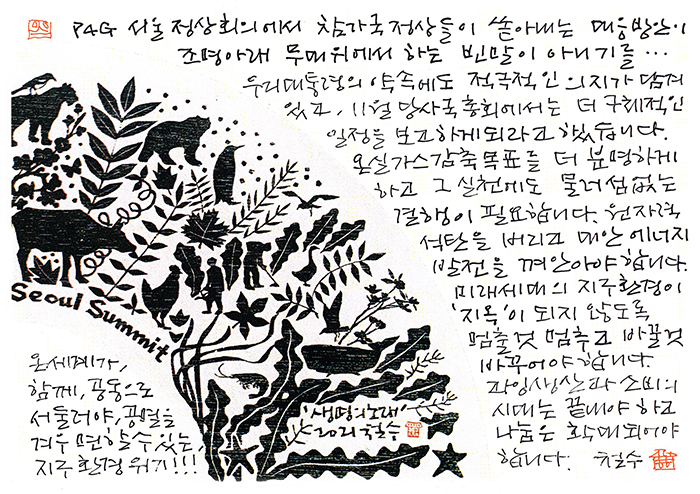 P4G 서울 정상회의에서 참가국 정상들이 쏟아내는 대응방안이
조명아래 무대위에서 하는 빈말이 아니기를…
우리대통령의 약속에도 적극적인 의지가 담겨
있고, 11월 당사국총회에서는 더 구체적인
일정을 보고하게 되리라고 했습니다.
온실가스감축목표를 더 분명하게
하고 그 실천에도 물러섬없는
결행이 필요합니다. 원자력
석탄을 버리고 대안에너지
발전을 껴안아야 합니다.
미래세대의 지구환경이
'지옥'이 되지 않도록
멈출것 멈추고 바꿀것
바꾸어야 합니다.
과잉생산과 소비의
시대는 끝내야 하고
나눔은 확대되어야
합니다. 철수
Seoul Summit
온세계가,
함께, 공동으로
서둘러야, 공멸을
겨우 면할 수 있는,
지구환경 위기!!!
'생명의 노래'
2021 철수